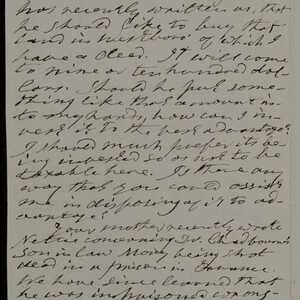 has recently written us, that
he should like to buy that
land in                of which I
have a deed. It will come
to nine or ten hundred dol-
lars. Should he put some-
thing like that amount in-
to my hands, how can I in-
vest it to the best advantage?
I should much prefer its be-
ing invested so as not to be
taxable here. Is there any
way that you could assist
me in disposing of it to ad-
vantage?
Your mother recently wrote
Nettie concerning Dr. Chadbourn's
son in law         being shot
dead in a prison in
We have since learned that
he was imprisoned wrong-